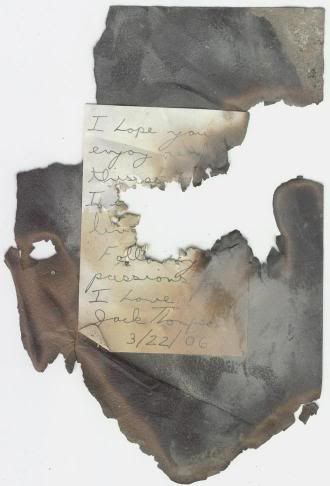 I hope you
enjoy
this
I
liv
Follow
passions
I have
Jack Thomps
3/22/06